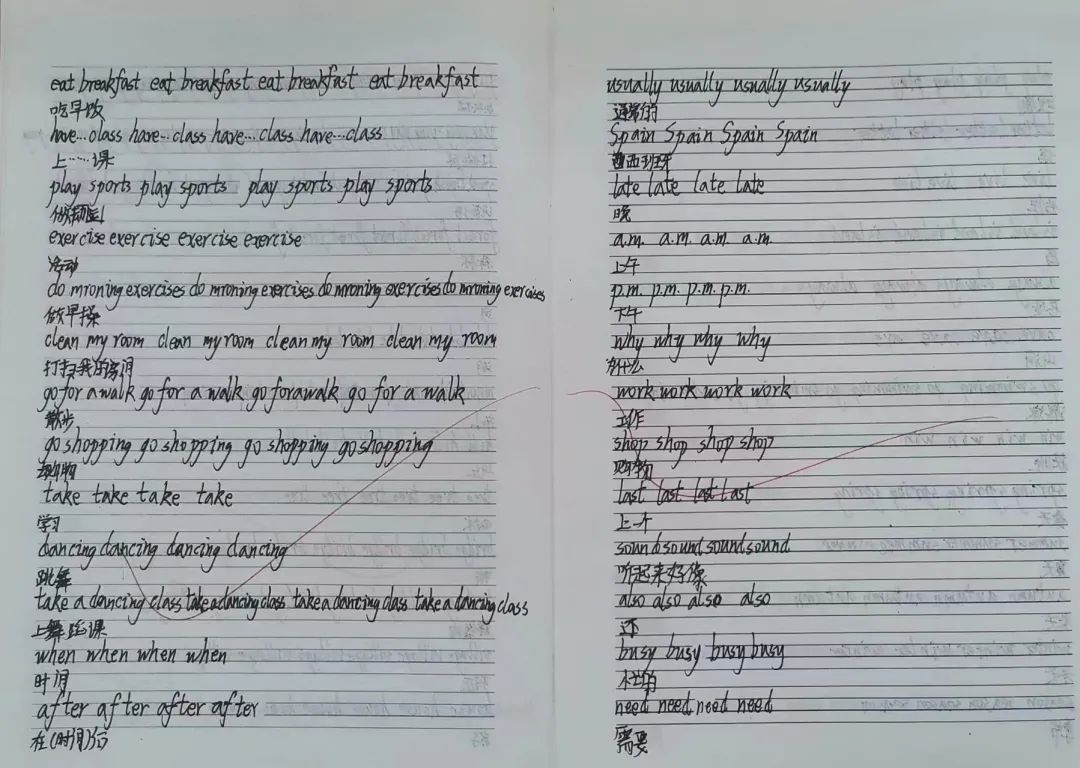 eat breakfast eat breakfast eat breakfast eat breakfast
吃早饭
have...class have...class have...class have...class
上……课
play sports play sports play sports play sports
做运动
exercise exercise exercise exercise
活动
do mroning exercises do mroning exercises do mroning exercises do mroning exercises
做早操
clean my room clean my room clean my room clean my room
打扫我的房间
go for a walk go for a walk go for a walk go for a walk
散步
go shopping go shopping go shopping go shopping
购物
take take take take
学习
dancing dancing dancing dancing
跳舞
take a dancing class take a dancing class take a dancing class take a dancing class
上舞蹈课
when when when when
时间
after after after after
在(时间)后
usually usually usually usually
通常的
Spain Spain Spain Spain
西班牙
late late late late
晚
a.m. a.m. a.m. a.m.
上午
p.m. p.m. p.m. p.m.
下午
why why why why
为什么
work work work work
工作
shop shop shop shop
购物
last last last last
上一个
sound sound sound sound
听起来好像
also also also also
还
busy busy busy busy
忙的
need need need need
需要